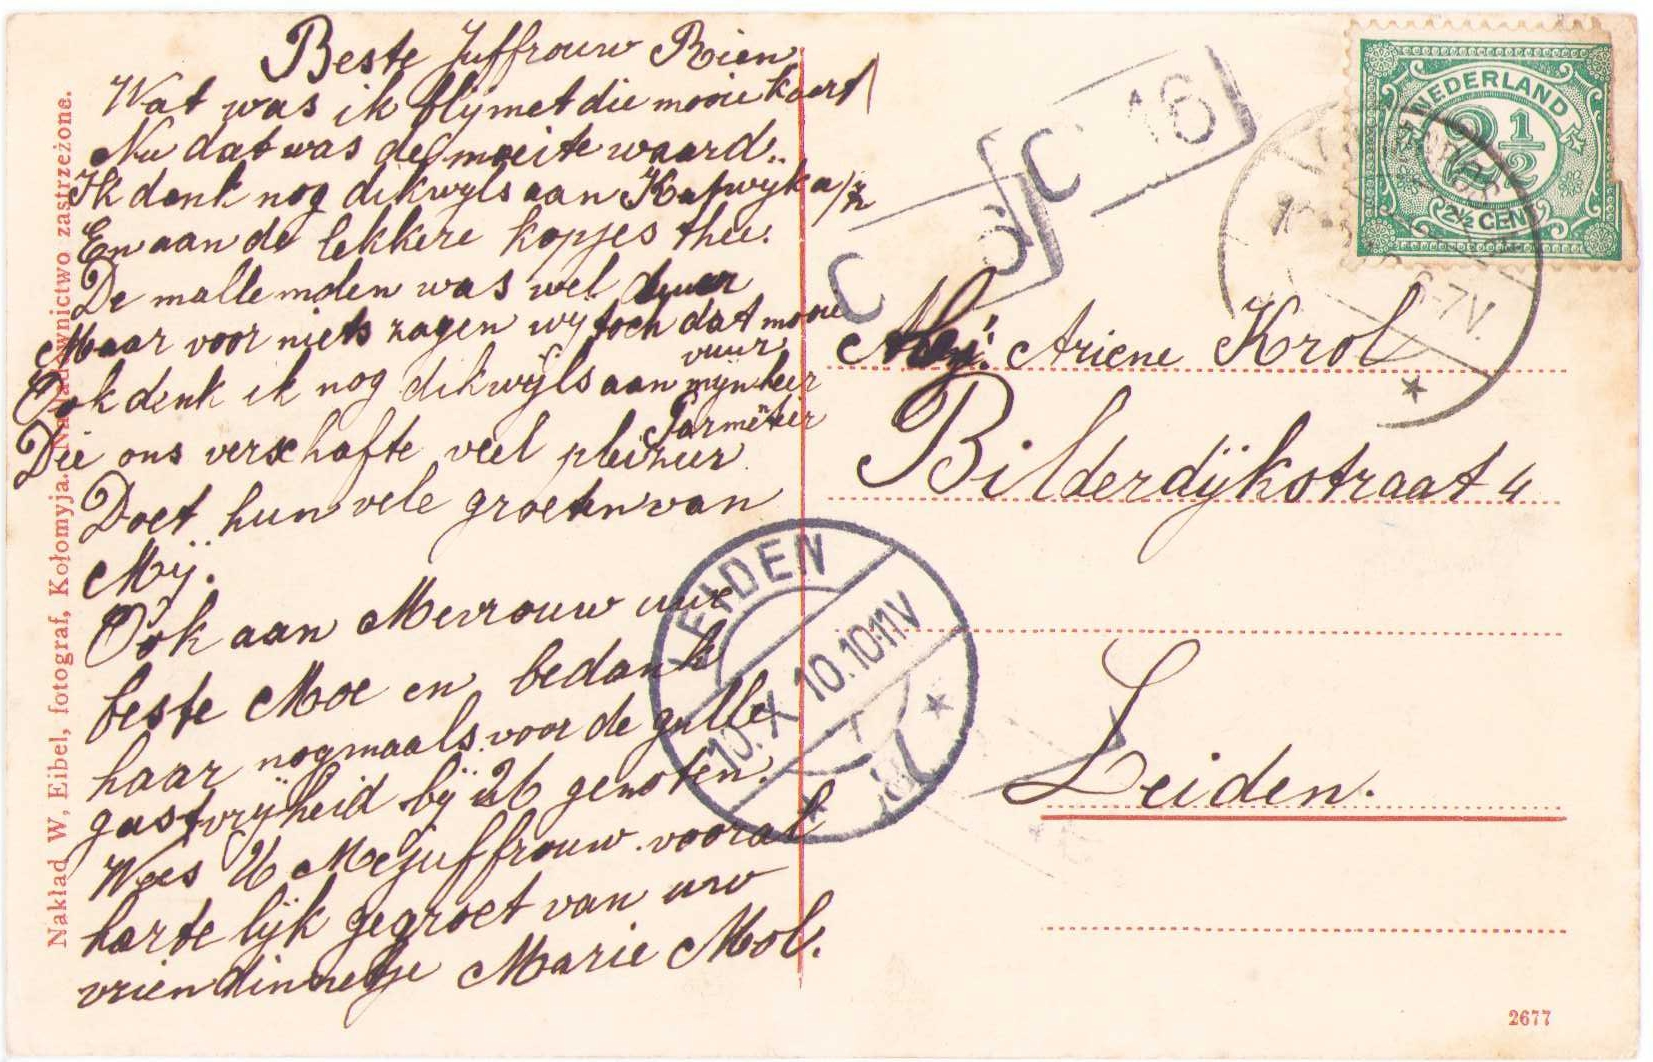 Beste Juffrouw Rien
Wat was ik blij met die mooie kaart
Nu dat was de moeite waard.
Ik denk nog dikwijls aan Katwijk a/z
En aan de lekkere kopjes thee.
De mallemolen was wel duur
Maar voor niets zagen wij toch dat mooie
vuur
Ook denk ik nog dikwijls aan mijnheer
Parmentier
Die ons verschafte veel pleizier.
Doet hun vele groeten van
Mij.
Ook aan Mevrouw uwe
beste Moe en bedank
haar nogmaals voor de gulle
gastvrijheid bij U genoten.
Wees U Mejuffrouw vooral
hartelijk gegroet van uw
vriendinnetje Marie Mol.
Nakład W, Eibel, fotograf, Kołomyja. Naśladownictwo zastrzeżone.
NEDERLAND
2½
2½ CENT
6-7V.
C 16
C 6
Mej. Ariene Krol
Bilderdijkstraat 4
Leiden.
LEIDEN
10.X 10.10-11V
2677